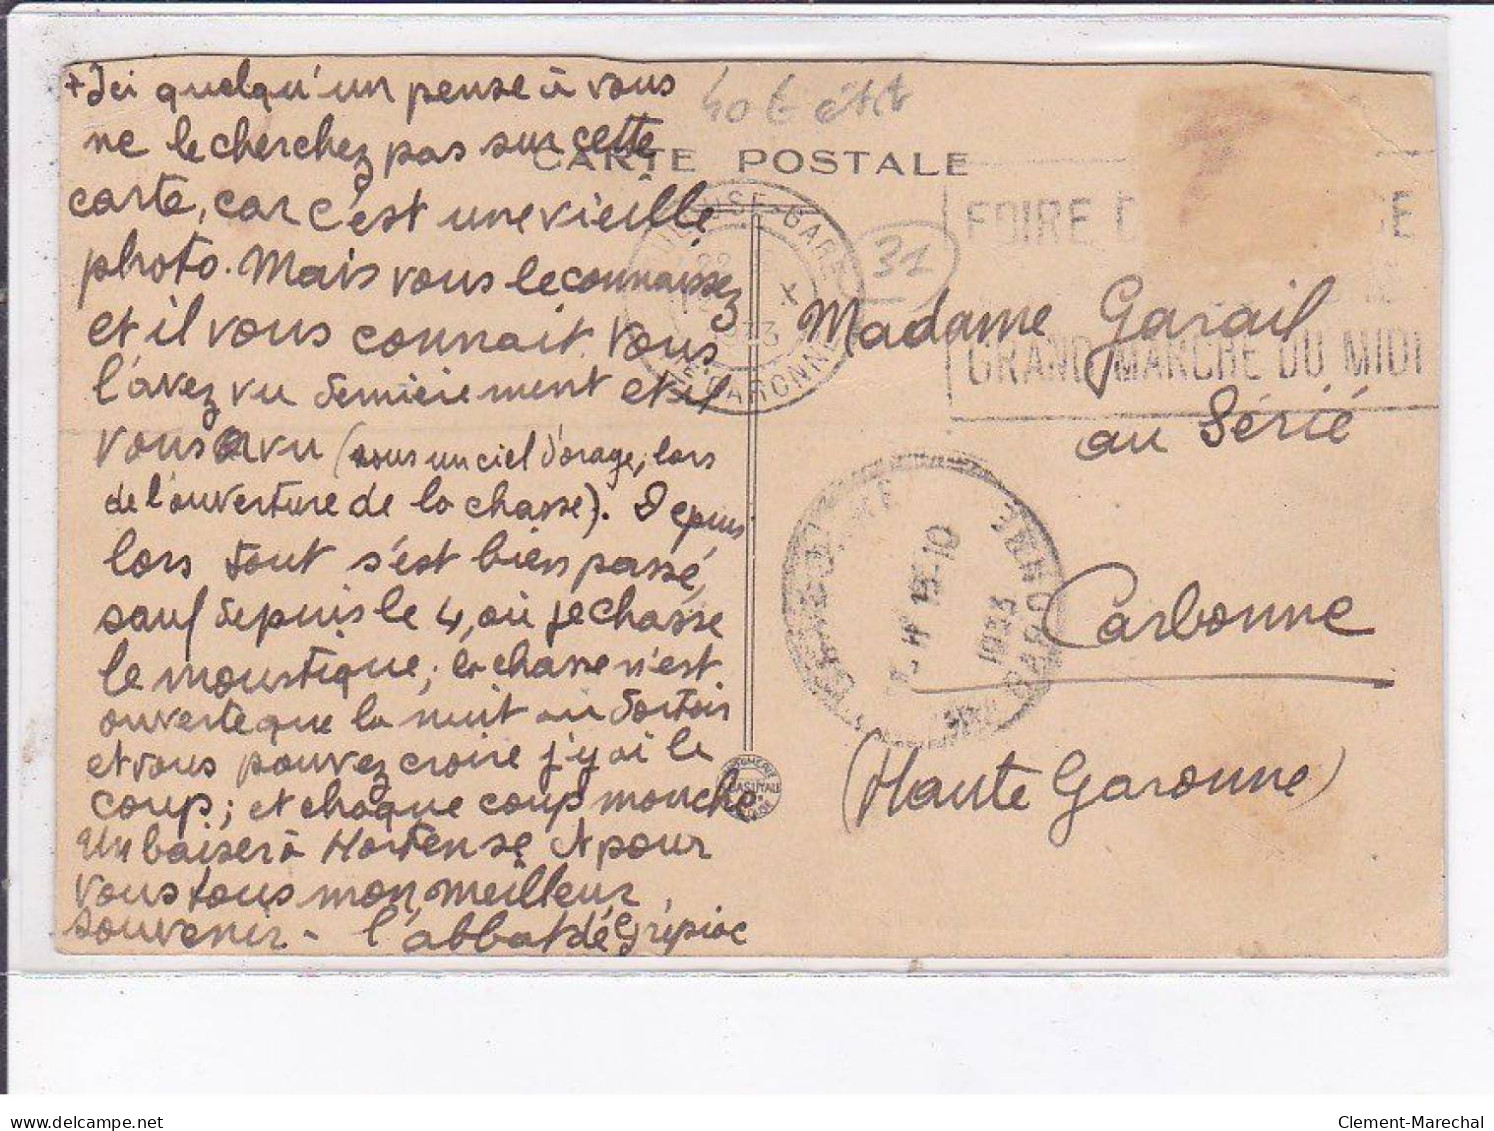 + Ici quelqu'un pense à vous
ne le cherchez pas sur cette
carte, car c'est une vieille
photo. Mais vous le connaissez
et il vous connait. Vous
l'avez vu dernièrement et il
vous a vu (sous un ciel d'orage, lors
de l'ouverture de la chasse). Depuis
lors tout s'est bien passé,
sauf depuis le 4, où je chasse
le moustique; la chasse n'est
ouverte que la nuit au
et vous pouvez croire j'y ai le
coup; et chaque coup mouche
Un baiser à Hortense et pour
vous tous mon meilleur
souvenir - l'abbat de Grépiac
40 t
CARTE POSTALE
TOULOUSE-GARE
X
1933
Hte GARONNE
31
FOIRE
GRAND MARCHE DU MIDI
Madame Garail
au Sérié
Carbonne
(Haute Garonne)
15-10
1933
CARBONNE
delcampe.net
Clement-Marechal